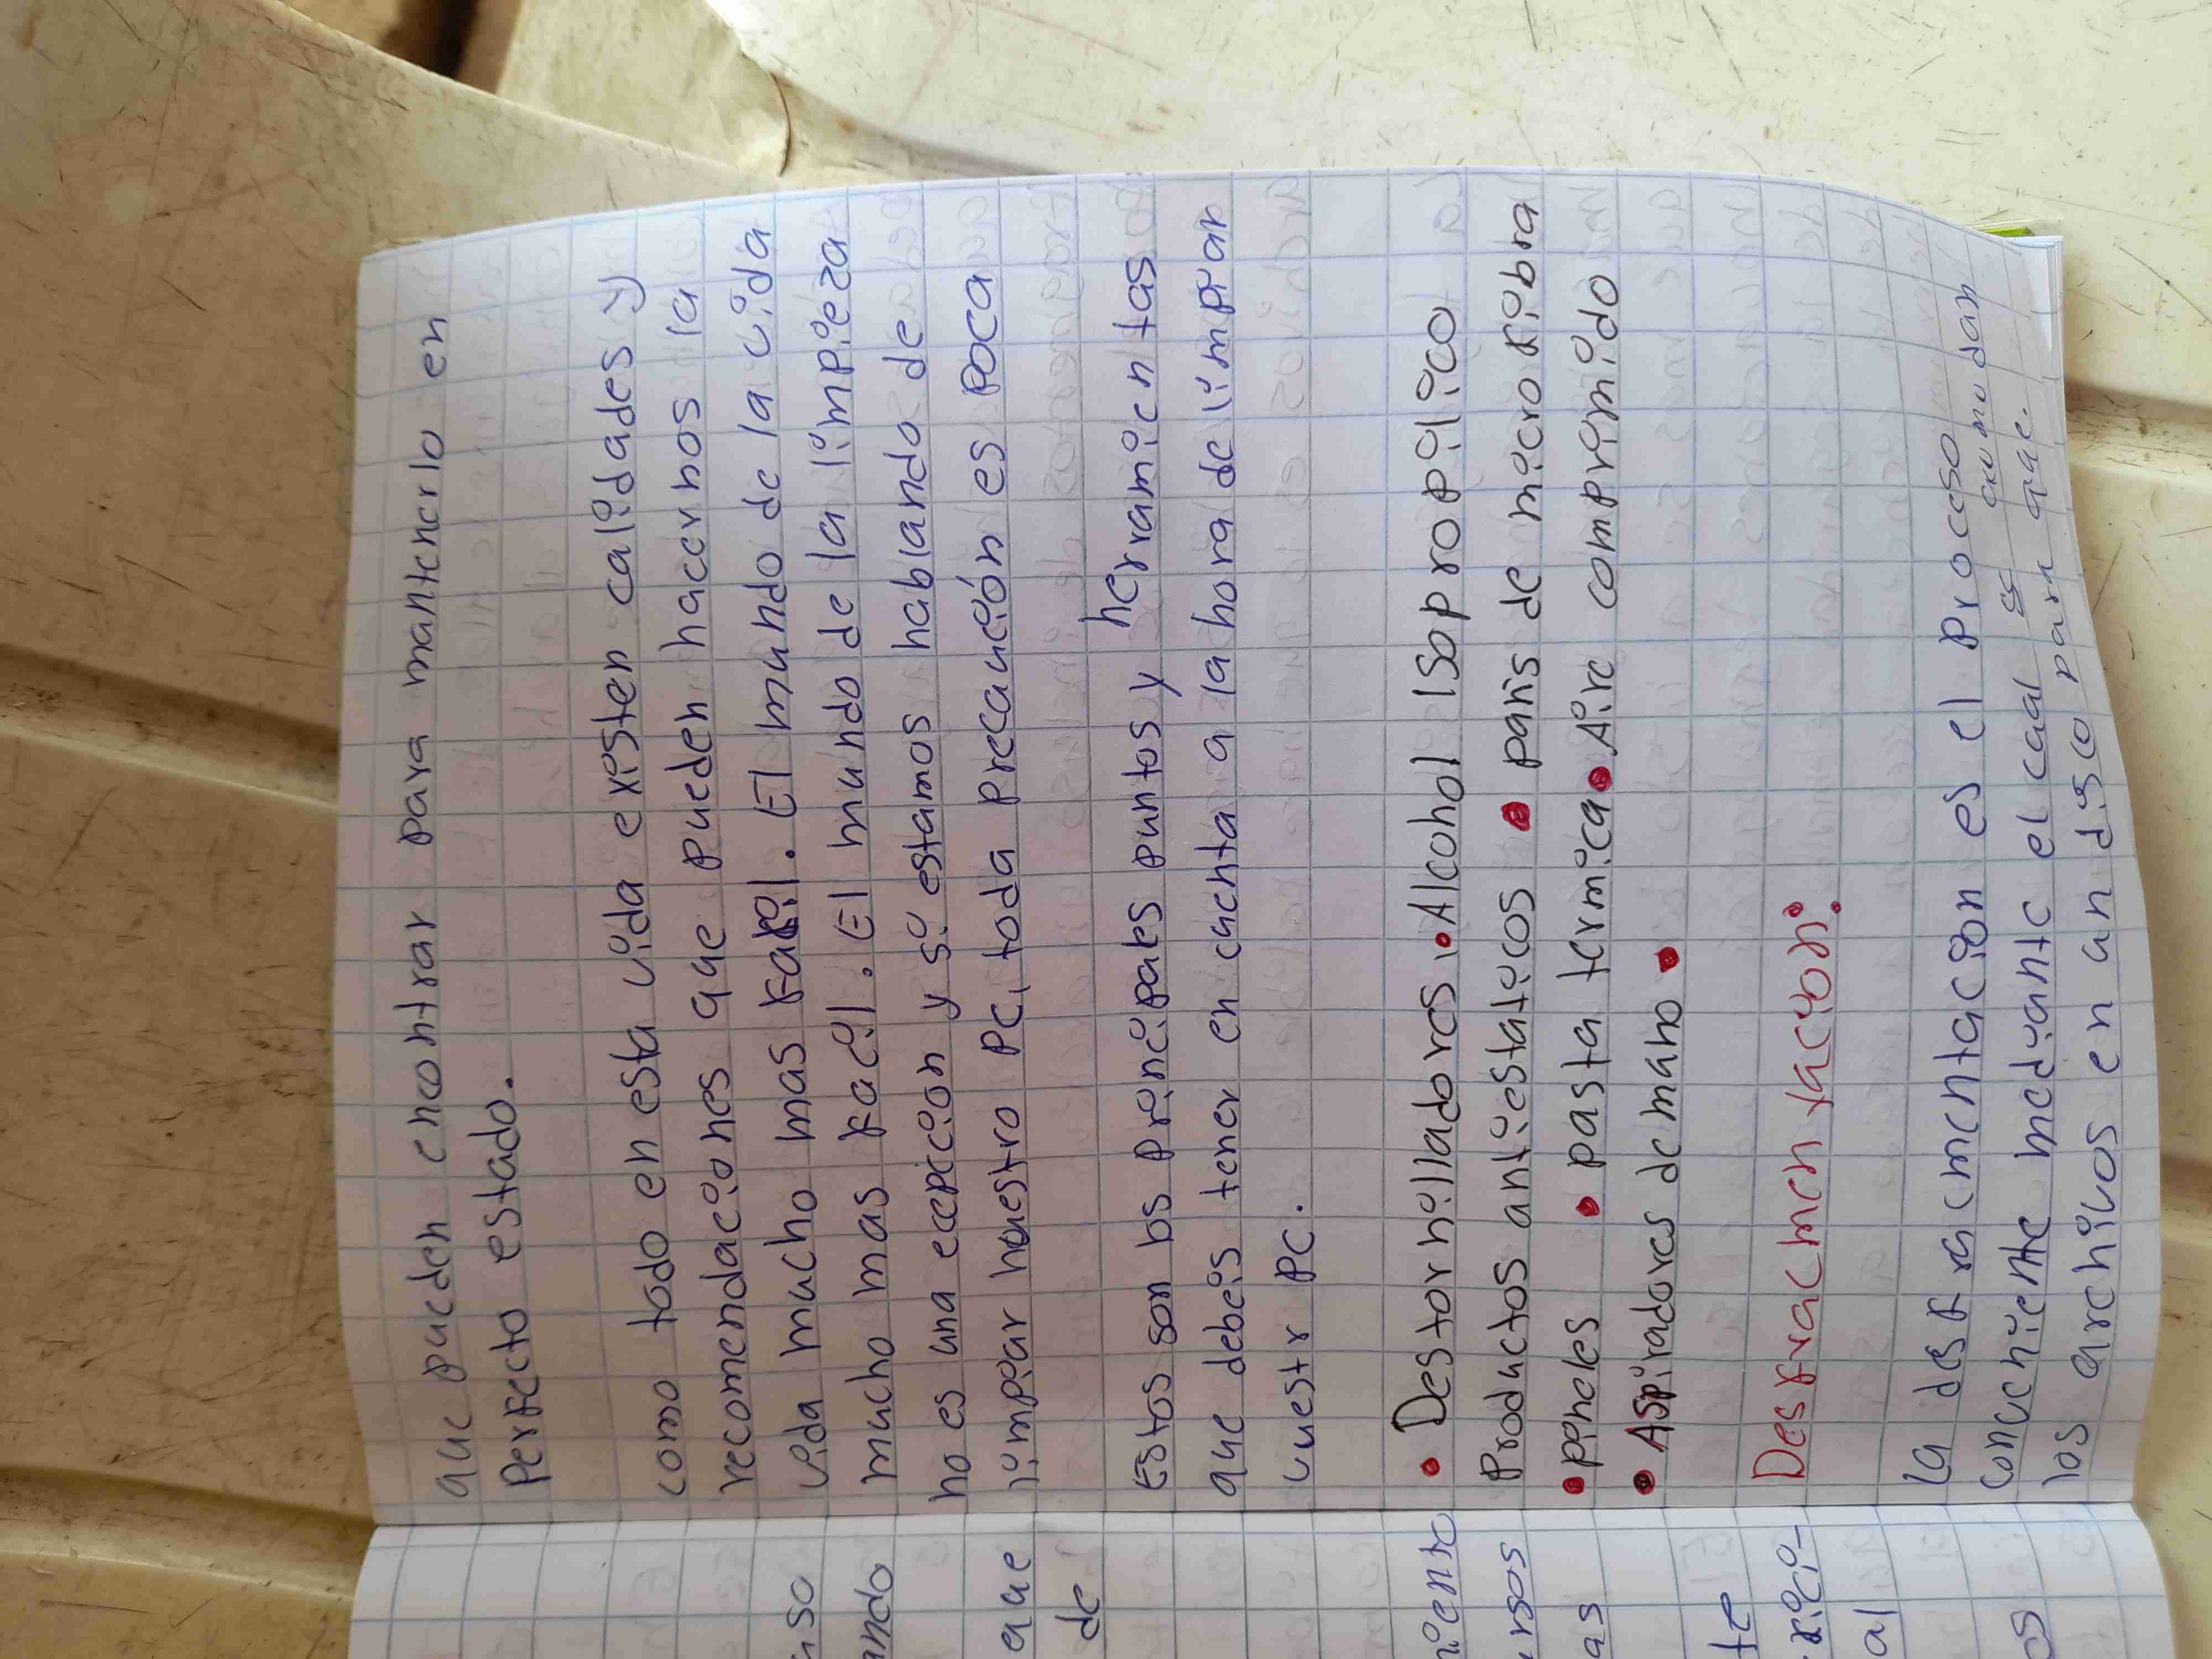 que pueden encontrar para mantenerlo en
Perfecto estado.
como todo en esta vida existen calidades y
recomendaciones que pueden hacernos la
vida mucho mas facil. El mundo de la vida
mucho mas facil. El mundo de la limpieza
no es una ecepicion y si estamos hablando de
limpiar nuestro PC, toda precaución es poca
Estos son los principales puntos y herramientas
que debeis tener en cuenta a la hora de limpiar
vuestr PC.
• Destornilladores. • Alcohol Isopropilico
Productos antiestaticos • panis de micro fibra
• pinceles • pasta termica • Aire comprimido
• Aspiradores de mano •
Desfracmen tacion:
la desfracmentacion es el proceso
conveniente mediante el cual se acomodan
los archivos en un disco para que.
nso
ando
que
de
niento
ursos
as
te
al
os